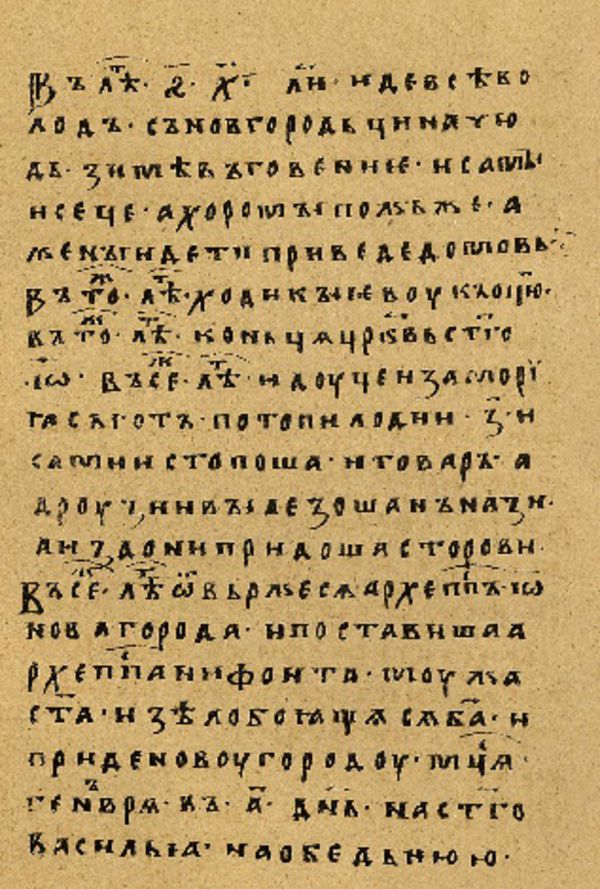 Въ лѣⷮ · ҂ѕ · х҃ · лн҃ · иде всѣво
лодъ · съ новгородьци на чю
дь · зимѣ въ говение · и самы
исѣце · а хоромы пожьже · а
жены и дети приведе домовь ·
въ тоⷤ · лѣⷮ · ходи кыевоу къ оц҃ю ·
въ тоⷤ · лѣⷮ · коньцѧ цр҃квь ст҃го
· іѡ҃ · въ сеⷤ · лѣⷮ · идоуче изаморі
ꙗ съ готъ · потопи лодии · з҃ · и
сами истопоша · и товаръ · а
дроузии вылезоша нъ нази ·
а издони придоша сторови ·
Въ сеⷤ · лѣⷮ ѿвьржесѧ архепⷭ҇пъ · іѡ
новагорода · и поставиша а
рхепⷭ҇па нифонта · моужа
ст҃а · и зѣло боꙗщѧсѧ б҃а · и
приде новоугородоу · мцⷭ҇ѧ ·
генъврѧ · въ · а҃ · дн҃ь · на ст҃го
василиꙗ · на обедьнюю ·